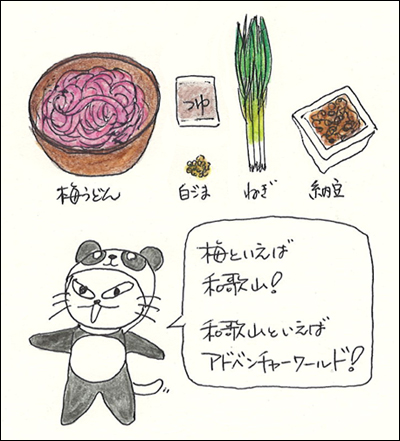 つゆ
梅うどん
白ごま
ねぎ
納豆
梅といえば
和歌山!
和歌山といえば
アドベンチャーワールド!